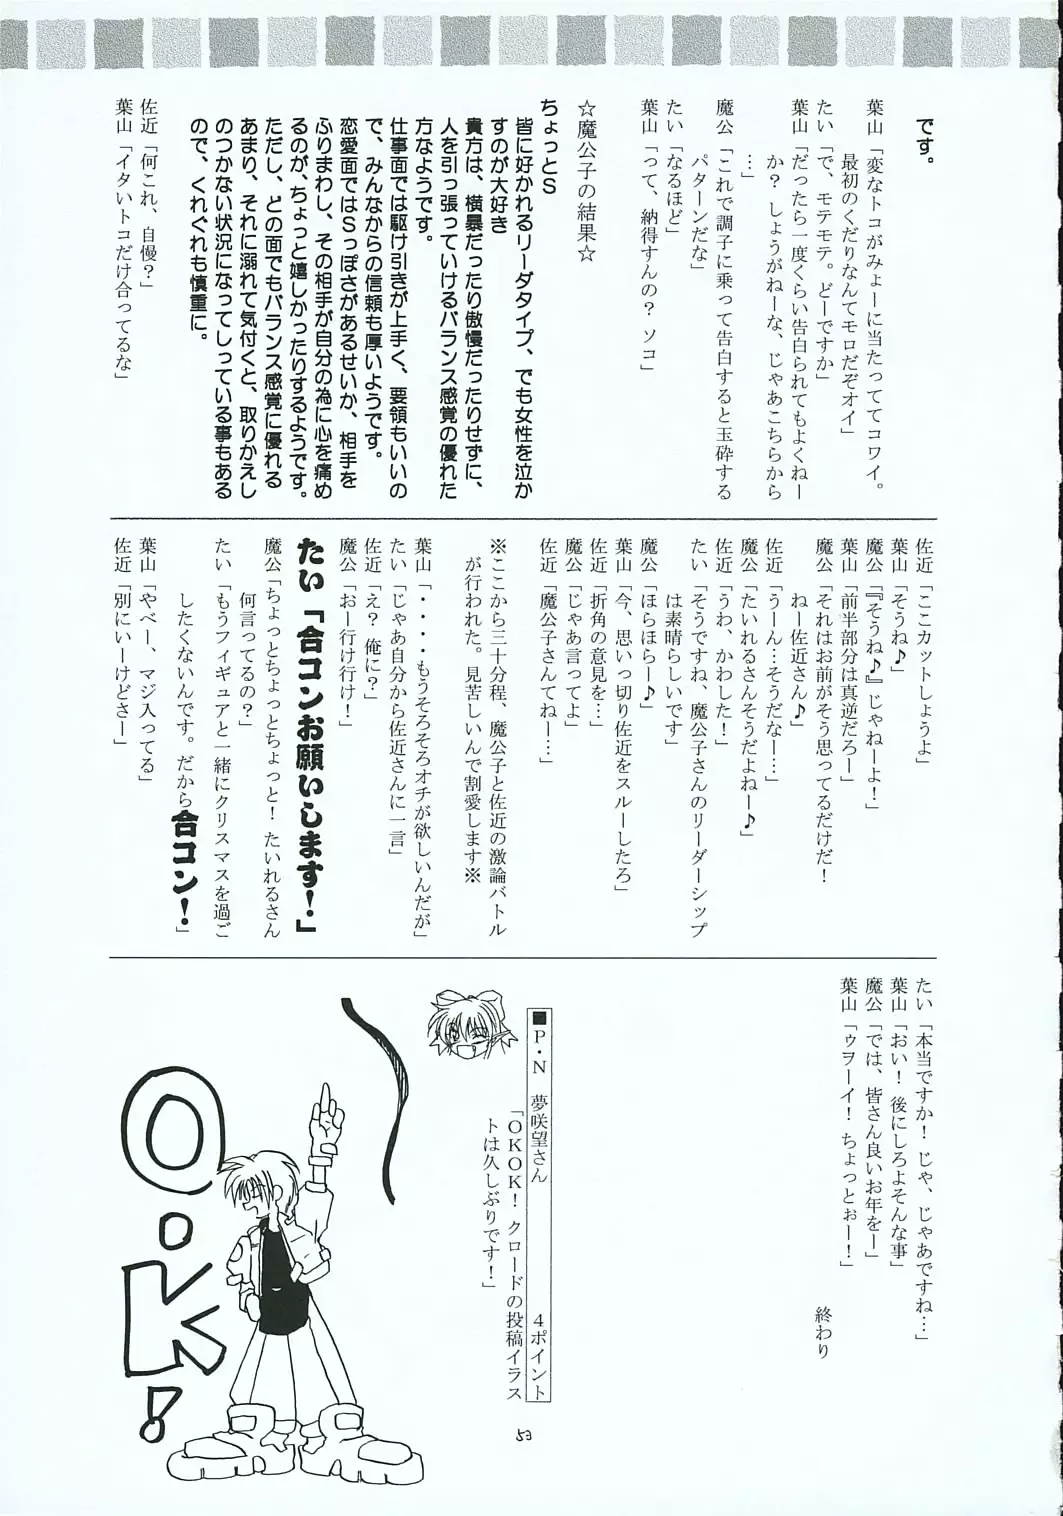 です。
葉山「変なトコがみょーに当たっててコワイ。
最初のくだりなんてモロだぞオイ」
たい「で、モテモテ。どーですか」
葉山「だったら一度くらい告白られてもよくねー
か？しょうがねーな、じゃあこちらから
…」
魔公「これで調子に乗って告白すると玉砕する
パターンだな」
たい「なるほど」
葉山「って、納得すんの？ソコ」
☆魔公子の結果☆
ちょっとS
皆に好かれるリーダタイプ、でも女性を泣か
すのが大好き
貴方は、横暴だったり傲慢だったりせずに、
人を引っ張っていけるバランス感覚の優れた
方なようです。
仕事面では駆け引きが上手く、要領もいいの
で、みんなからの信頼も厚いようです。
恋愛面ではSっぽさがあるせいか、相手を
ふりまわし、その相手が自分の為に心を痛め
るのが、ちょっと嬉しかったりするようです。
ただし、どの面でもバランス感覚に優れる
あまり、それに溺れて気付くと、取りかえし
のつかない状況になってしっている事もある
ので、くれぐれも慎重に。
佐近「何これ、自慢？」
葉山「イタいトコだけ合ってるな」
佐近「ここカットしようよ」
葉山「そうね♪」
魔公「『そうね♪』じゃねーよ！」
葉山「前半部分は真逆だろー」
魔公「それはお前がそう思ってるだけだ！
ねー佐近さん♪」
佐近「うーん…そうだなー…」
魔公「たいれるさんそうだよねー♪」
佐近「うわ、かわした！」
たい「そうですね、魔公子さんのリーダーシップ
は素晴らしいです」
魔公「ほらほらー♪」
葉山「今、思いっ切り佐近をスルーしたろ」
佐近「折角の意見を…」
魔公「じゃあ言ってよ」
佐近「魔公子さんてねー…」
※ここから三十分程、魔公子と佐近の激論バトル
が行われた。見苦しいんで割愛します※
葉山「・・・・もうそろそろオチが欲しいんだが」
たい「じゃあ自分から佐近さんに一言」
佐近「え？俺に？」
魔公「おー行け行け！」
たい「合コンお願いします！」
魔公「ちょっとちょっとちょっと！たいれるさん
何言ってるの？」
たい「もうフィギュアと一緒にクリスマスを過ご
したくないんです。だから合コン！」
葉山「やべー、マジ入ってる」
佐近「別にいーけどさー」
たい「本当ですか！じゃ、じゃあですね…」
葉山「おい！後にしろよそんな事」
魔公「では、皆さん良いお年をー」
葉山「ゥヲーイ！ちょっとぉー！」
終わり
■P・N 夢咲望さん 4ポイント
「OKOK！クロードの投稿イラス
トは久しぶりです！」
O・K！
53